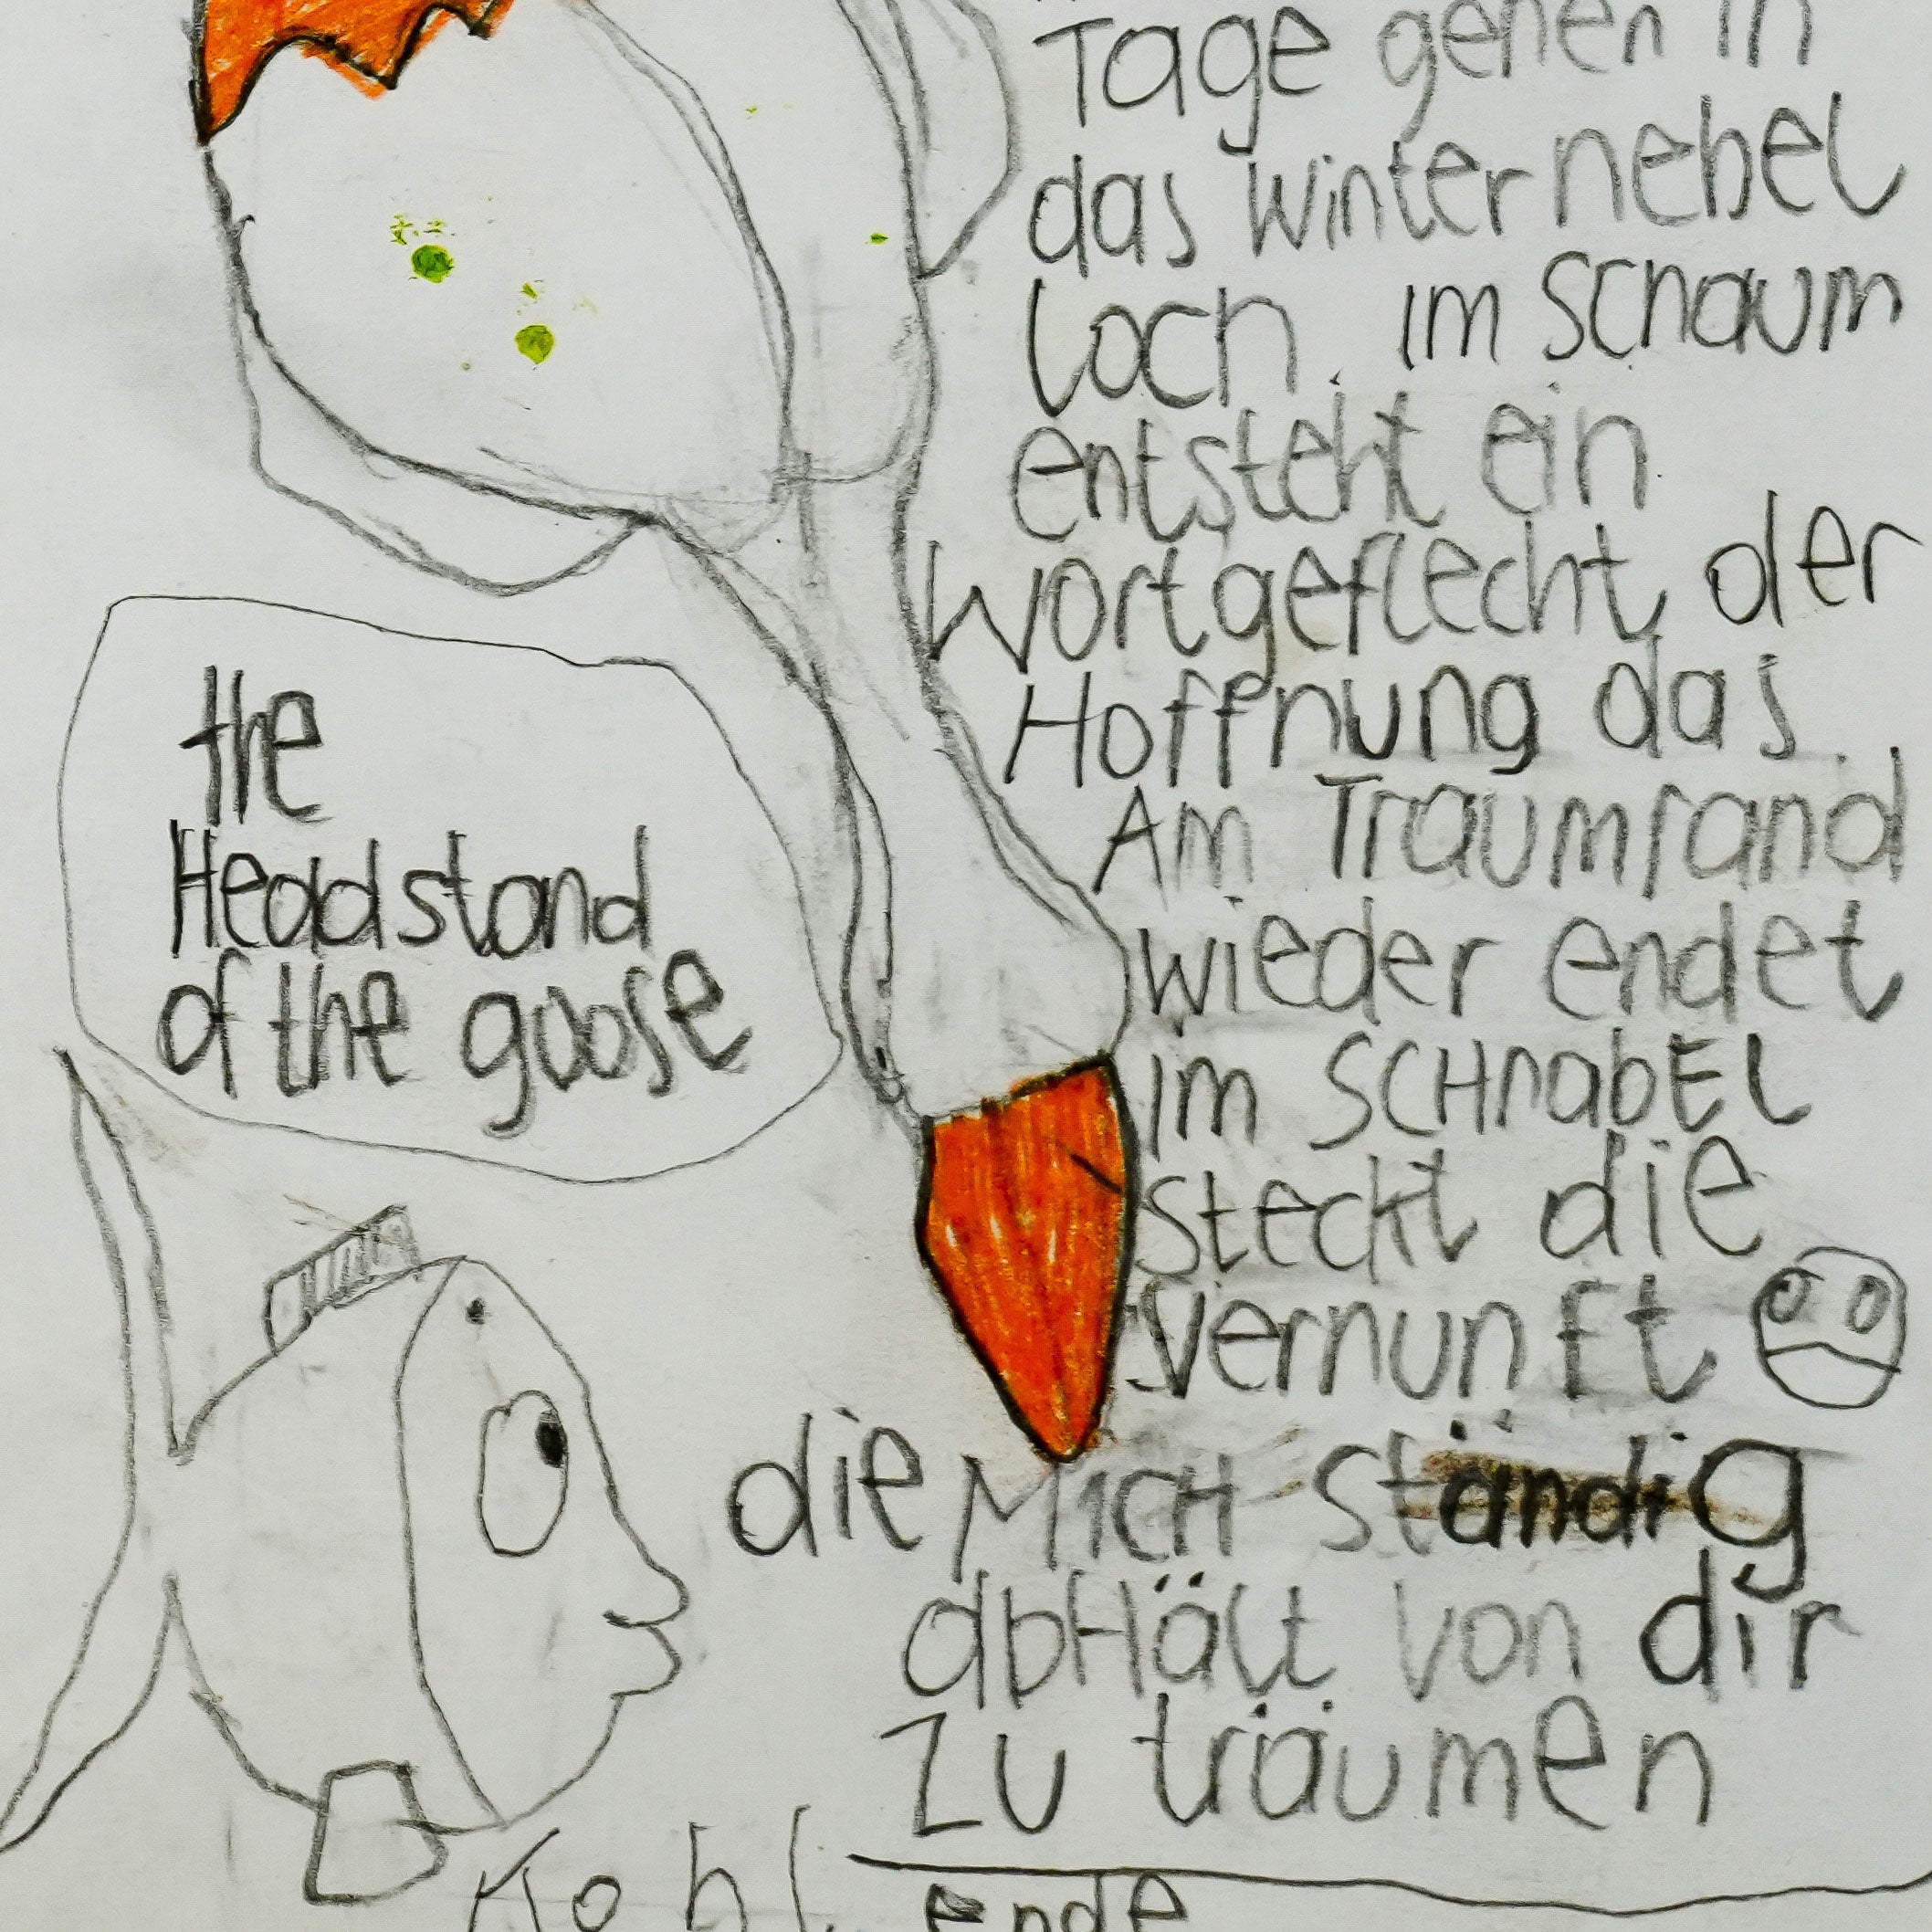 Tage gehen in
das Winternebel
Loch. im Schaum
entsteht ein
Wortgeflecht der
Hoffnung das
Am Traumrand
wieder endet
im SCHnabEL
steckt die
Vernunft
die MICH ständig
abHält von dir
Zu träumen
the
Headstand
of the goose
Kohl
ende